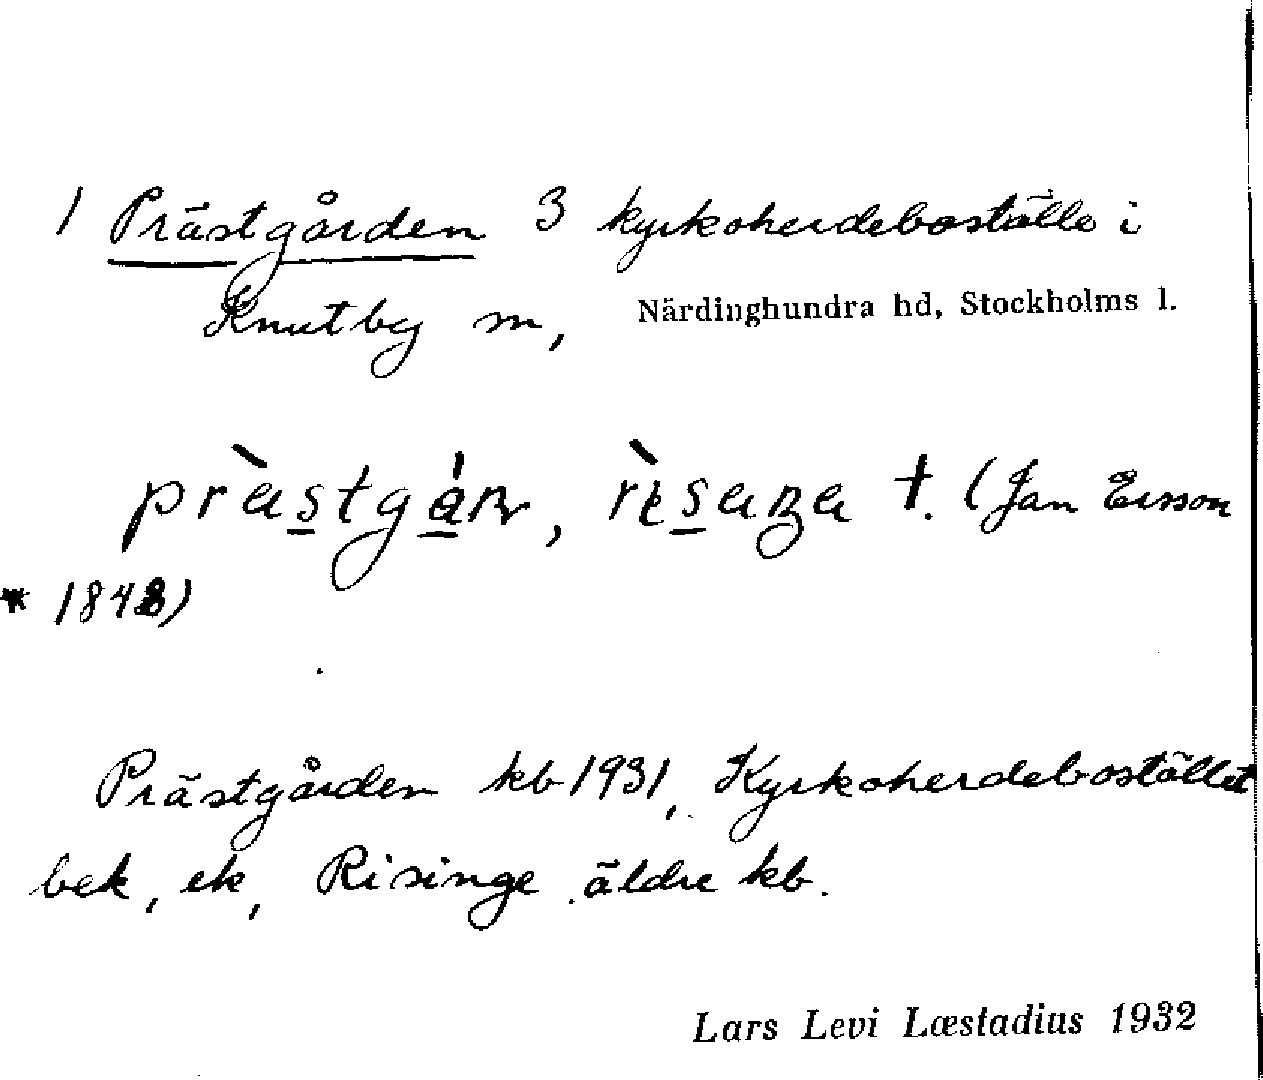 1 Prästgården 3 kyrkoherdeboställe i
Knutby sn, Närdinghundra hd, Stockholms l.
prästgán, t. (Jan Ersson
* 1848)
Prästgården kb 1931, Kyrkoherdebostället
bek, ek, Risinge äldre kb.
Lars Levi Læstadius 1932